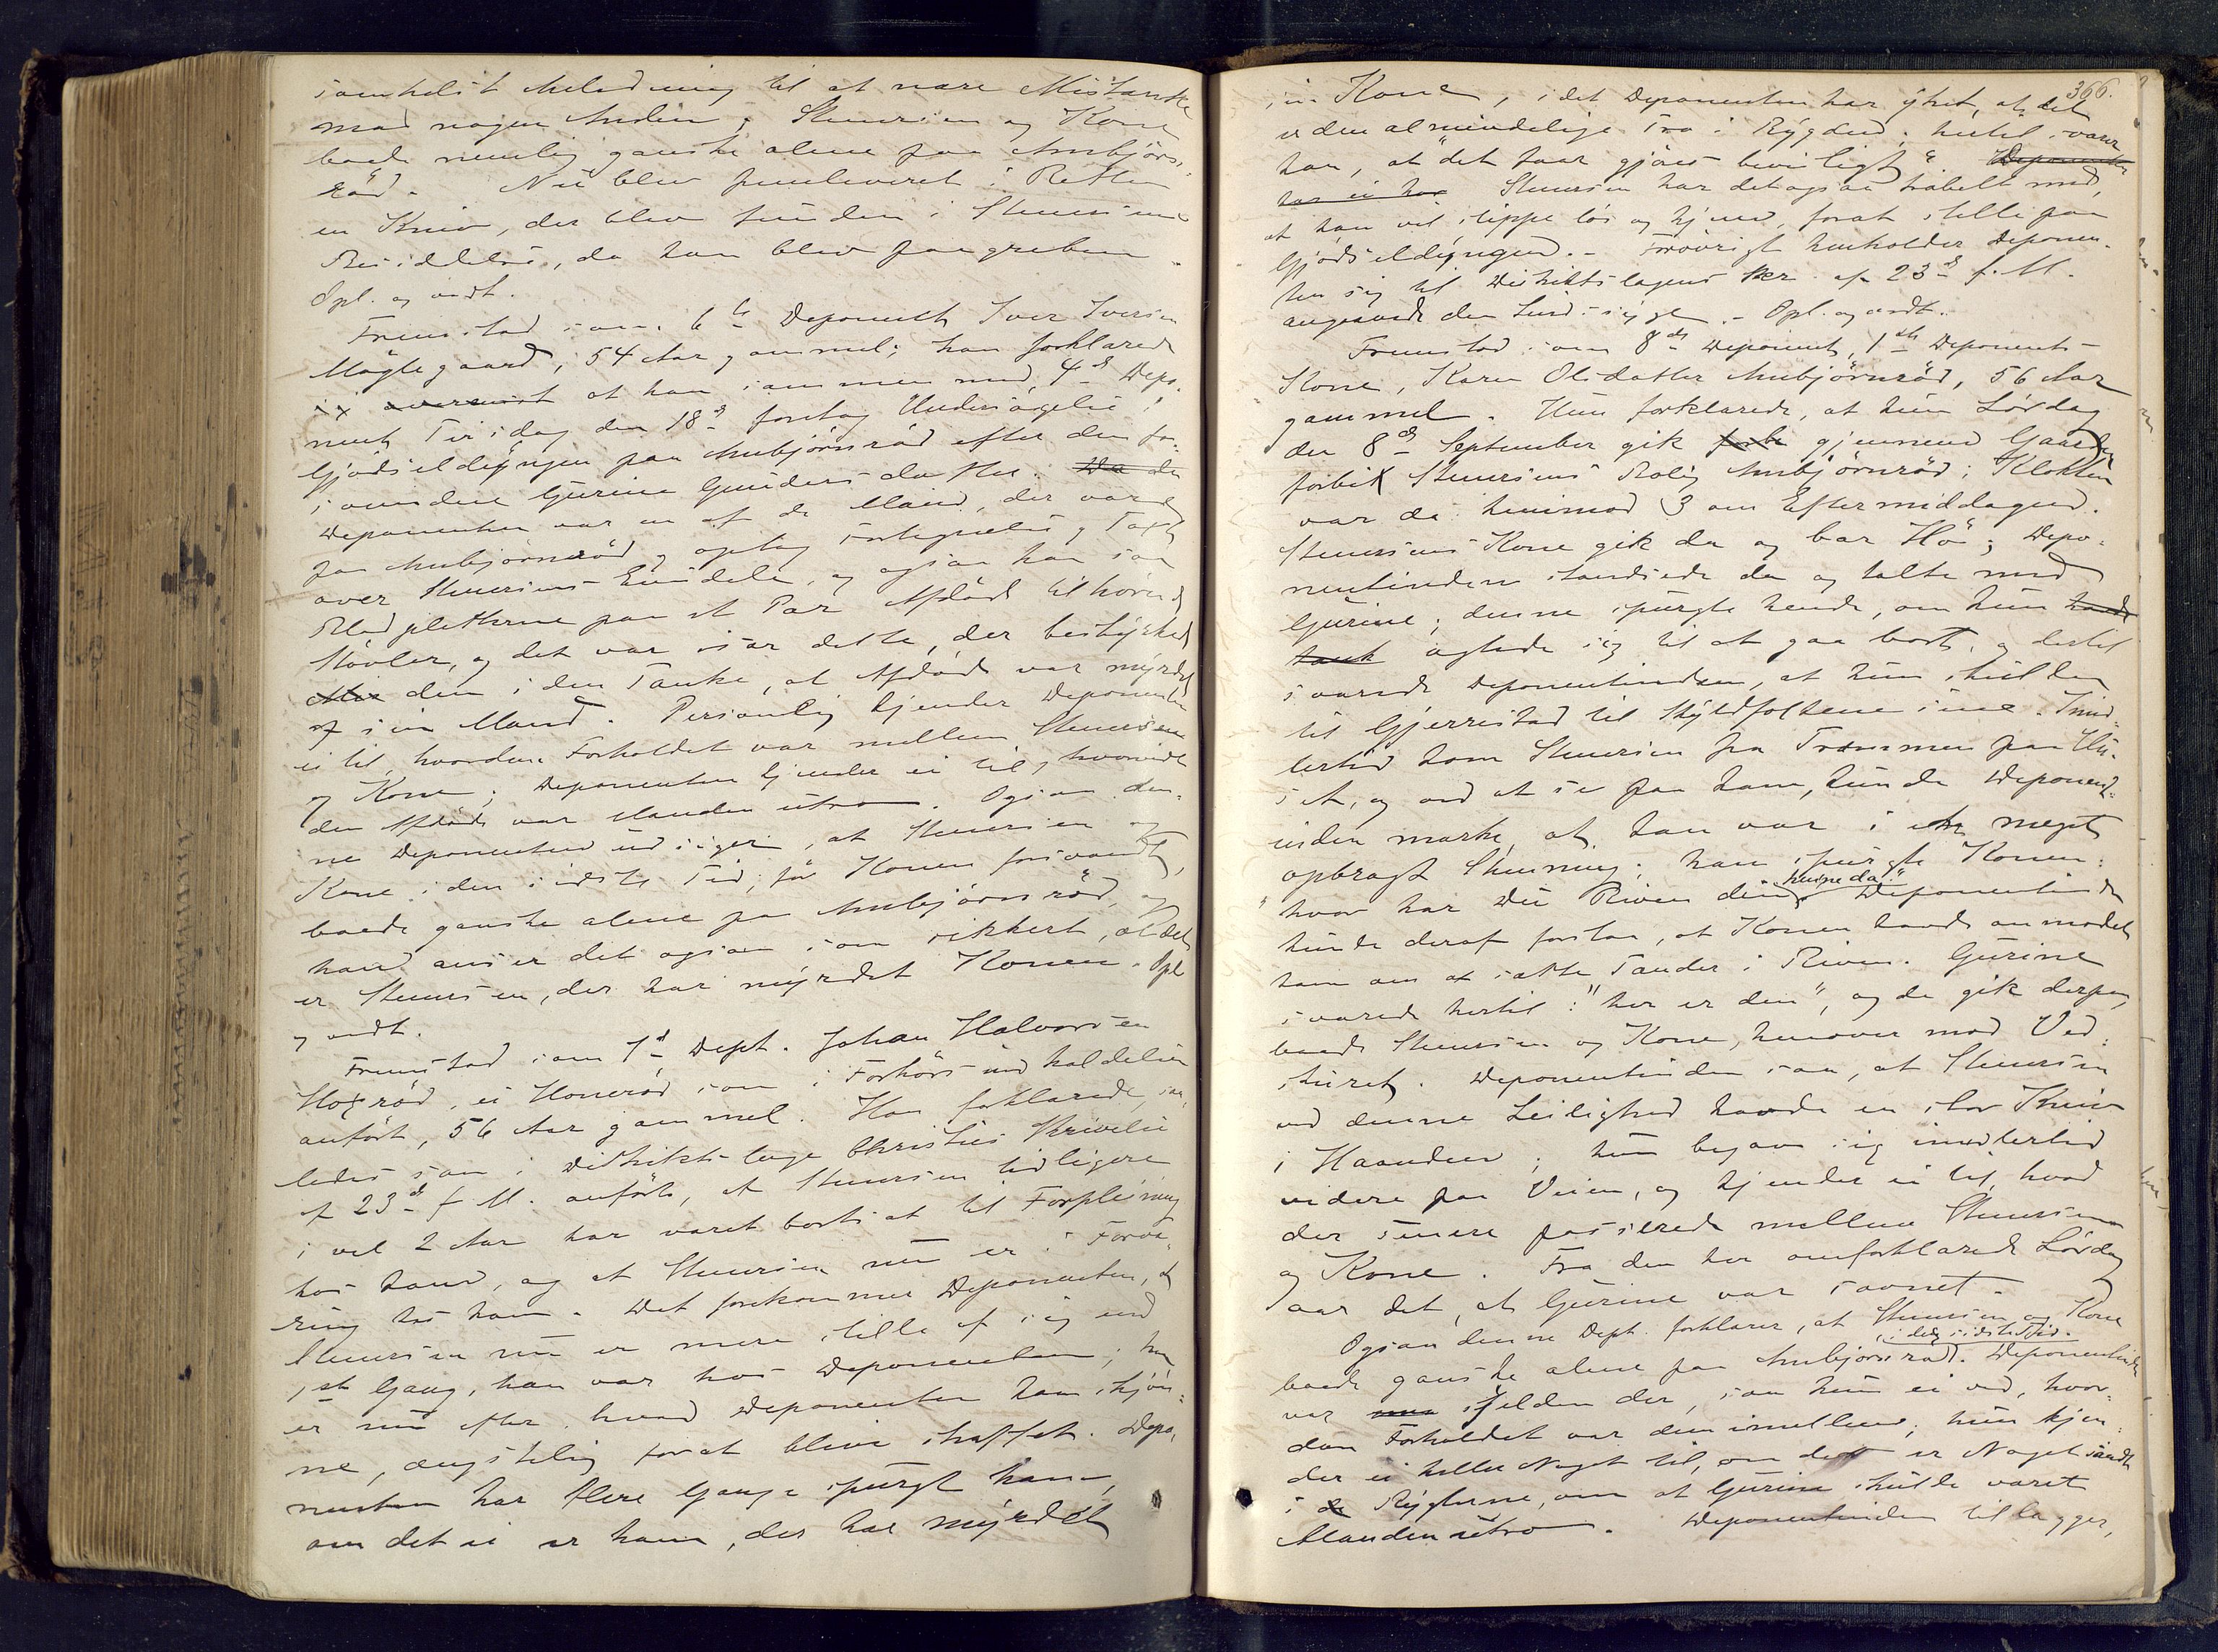 somhelst Anledning til at nære Mistanke
mod nogen Anden; Stuursen og Kone
boede nemlig ganske alene paa Ambjörns-
röd. Nu blev fremleveret i Retten
en Kniv, der blev funden i Stuursens
Besiddelse, da han blev paagreben.
Opl. og vedt.
Fremstod som 6te Deponent Iver Iversen
Møglegaard, 54 Aar gammel; han forklarede
at han sammen med 4de Depo-
nent Tirsdag den 18de foretog Undersøgelse i
Gjödseldyngen paa Ambjörnsröd efter den for-
svundne Gurine Gundersdatter. Da den
Deponenten var en af de Mænd, der vare
paa Ambjörnsröd og optog Fortegnelse og Taxt
over Stuursens Eiendele, og ogsaa han saa
Blodpletterne paa et Par Afdöde tilhörende
Stövler, og det var især dette, der bestyrkede
Alle dem i den Tanke, at Afdöde var myrdet
af sin Mand. Personlig kjender Deponenten
ei til, hvordan Forholdet var mellem Stuursen
og Kone; Deponenten kjender ei til, hvorvidt
den Afdöde var Manden utro. Ogsaa den-
ne Deponent udsiger, at Stuursen og
Kone i den sidste Tid, för Konen forsvandt,
boede ganske alene paa Ambjörnsröd, og
han anser det ogsaa som sikkert, at det
er Stuursen, der har myrdet Konen. Opl
og vedt.
Fremstod som 7de Dept. Johan Halvorsen
Hoxröd, ei Honeröd som i Forhörs indkaldelsen
anfört, 56 Aar gammel. Han forklarede, saa-
ledes som i Distriktslæge Christies Skrivelse
af 23de f. M. anfört, at Stuursen tidligere
i vel 2 Aar har været bortsat til Forpleining
hos ham, og at Stuursen nu er i Forva-
ring hos ham. Det forekommer Deponenten, at
Stuursen nu er mere stille af sig end
1ste Gang, han var hos Deponenten; han
er nu efter, hvad Deponenten kan skjön-
ne, ængstelig forat blive straffet. Depo-
nenten har flere Gange spurgt ham,
om det ei er ham, der har myrdet
366.
sin Kone, idet Deponenten har ytret, at det
er den almindelige Tro i Bygden; hertil svarer
han, at "det faar gjöres bevisligt". Deponenten
har ei hør Stuursen har det ogsaa travelt med,
at han vil slippe lös og hjem, forat stelle paa
Gjödseldyngen. - Forövrigt henholder Deponen-
ten sig til Distriktslægens Skr. af 23de f. M.
angaaende den Sindssyge. - Opl. og vedt.
Fremstod som 8de Deponent, 1ste Deponents
Kone, Karen Olsdatter Ambjörnröd, 56 Aar
gammel. Hun forklarede, at hun Lördag
den 8de September gik forbi gjennem Gaarden
forbi Stuursens Bolig Ambjörnröd; Klokken
var da henimod 3 om Eftermiddagen.
Stuursens Kone gik da og bar Hö; Depo-
nentinden standsede da og talte med
Gurine; denne spurgte hende, om hun havde
tænk agtede sig til at gaa bort, og dertil
svarede Deponentinden, at hun skulde
til Gjerrestad til Skyldfolkene sine. Imid-
lertid kom Stuursen fra Trammen paa Hu-
set, og ved at se paa ham, kunde Deponent-
inden mærke, at han var i en meget
opbragt Stemning; han spurgte Konen:
"hvor har Du Riven din henne da?" Deponentinden
kunde deraf forstaa, at Konen havde anmodet
ham om at sætte Tænder i Riven. Gurine
svarede hertil: "her er den", og de gik derpaa,
baade Stuursen og Kone, henover mod Ved-
skuret. Deponentinden saa, at Stuursen
ved denne Leilighed havde en stor Kniv
i Haanden; hun begav sig imidlertid
videre paa Veien, og kjender ei til, hvad
der senere passerede mellem Stuursen
og Kone. Fra den her omforklarede Lördag
var det, at Gurine var savnet.
Ogsaa denne Dept. forklarer, at Stuursen og Kone
boede ganske alene paa Ambjörnsröd i den sidste Tid. Deponentinden
var sjelden der, saa hun ei ved, hvor-
dan Forholdet var dem imellem; hun kjen-
der ei heller Noget til, om der er Noget sandt
i de Rygterne, om at Gurine skulde været
Manden utro. Deponentinden tillægger,